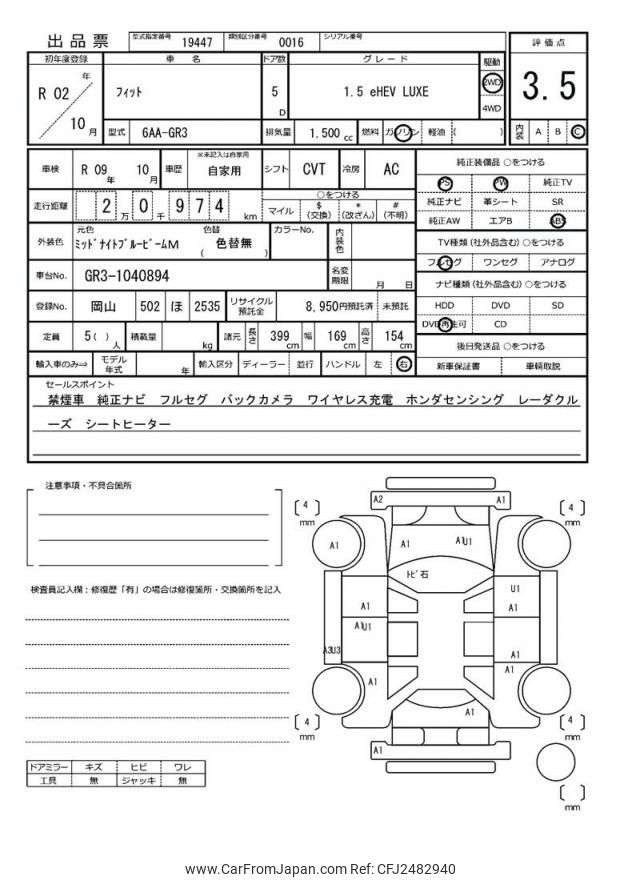 出品票 型式指定番号 19447 類別区分番号 0016 シリアル番号
評価点
3.5
内装 A B C
初年度登録 車名 ドア数 グレード 駆動
R 02 年 10 月 フィット 5 D 1.5 eHEV LUXE 2WD 4WD
型式 6AA-GR3 排気量 1.500 cc 燃料 ガソリン 軽油 ( )
車検 R 09 年 10 月 車歴 ※未記入は自家用 自家用 シフト CVT 冷房 AC
走行距離 2 万 0 千 9 7 4 km ○をつける
マイル $ (交換) * (改ざん) # (不明)
外装色 元色 ミッドナイトブルービームM 色替 ( 色替無 ) カラーNo. 内装色
車台No. GR3-1040894 名変期限 月 日
登録No. 岡山 502 ほ 2535 リサイクル預託金 8,950円預託済 未預託
定員 5 ( ) 人 積載量 kg 諸元 長さ 399 cm 幅 169 cm 高さ 154 cm
輸入車のみ⇒ モデル年式 年 輸入区分 ディーラー 並行 ハンドル 左 右
純正装備品 ○をつける
PS PW 純正TV
純正ナビ 革シート SR
純正AW エアB ABS
TV種類 (社外品含む) ○をつける
フルセグ ワンセグ アナログ
ナビ種類 (社外品含む) ○をつける
HDD DVD SD
DVD再生可 CD
後日発送品 ○をつける
新車保証書 車輌取説
セールスポイント
禁煙車 純正ナビ フルセグ バックカメラ ワイヤレス充電 ホンダセンシング レーダクル
ーズ シートヒーター
注意事項・不具合箇所
検査員記入欄：修復歴「有」の場合は修復箇所・交換箇所を記入
ドアミラー キズ ヒビ ワレ
工具 無 ジャッキ 無
A2 A1
[ 4 ] mm [ 4 ] mm
A1 A1 A1U1
トビ石
A1 U1 A1
A1U1
A3U3 A1
A1 A1
A1
[ 4 ] mm [ 4 ] mm
A1
[ ] mm
www.CarFromJapan.com Ref: CFJ2482940